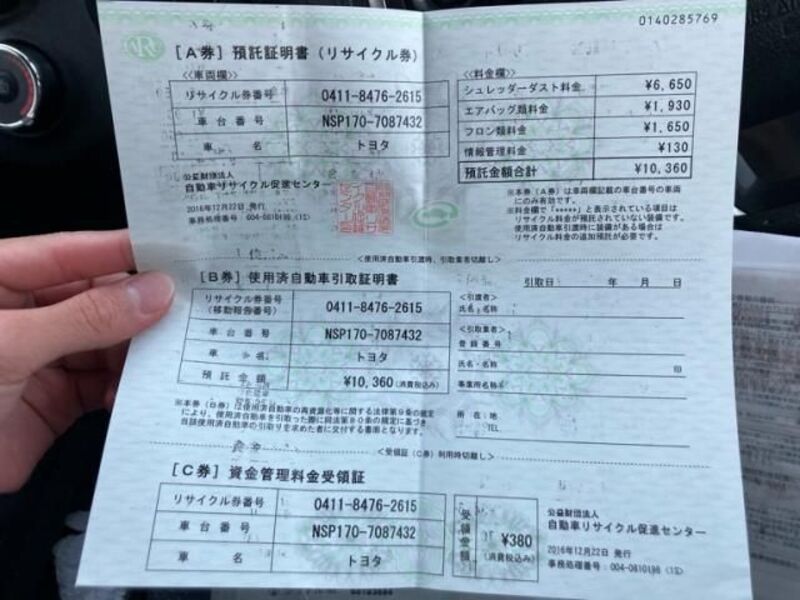 0140285769
[A券] 預託証明書 (リサイクル券)
≪車両欄≫
リサイクル券番号 0411-8476-2615
車台番号 NSP170-7087432
車名 トヨタ
公益財団法人
自動車リサイクル促進センター
2016年12月22日 発行
事務処理番号:004-0810198 (1S)
≪料金欄≫
シュレッダーダスト料金 ¥6,650
エアバッグ類料金 ¥1,930
フロン類料金 ¥1,650
情報管理料金 ¥130
預託金額合計 ¥10,360
※本券(A券)は車両欄記載の車台番号の車両
にのみ有効です。
※料金欄で「*****」と表示されている項目は
リサイクル料金が預託されていない装備です。
使用済自動車引渡時に装備がある場合は
リサイクル料金の追加預託が必要です。
<使用済自動車引渡時、引取業者切離し>
[B券] 使用済自動車引取証明書
引取日: 年 月 日
リサイクル券番号
(移動報告番号) 0411-8476-2615
車台番号 NSP170-7087432
車名 トヨタ
預託金額 ¥10,360 (消費税込み)
<引渡者>
氏名・名称
<引取業者>
登録番号
氏名・名称 印
事業所名称
所在地
TEL
※本券(B券)は使用済自動車の再資源化等に関する法律第9条の規定
により、使用済自動車を引取った際に同法第80条の規定に基づき
当該使用済自動車の引取りを求めた者に交付する書面となります。
<受領証(C券)利用時切離し>
[C券] 資金管理料金受領証
リサイクル券番号 0411-8476-2615
車台番号 NSP170-7087432
車名 トヨタ
受領金額 ¥380
(消費税込み)
公益財団法人
自動車リサイクル促進センター
2016年12月22日 発行
事務処理番号:004-0810198 (1S)